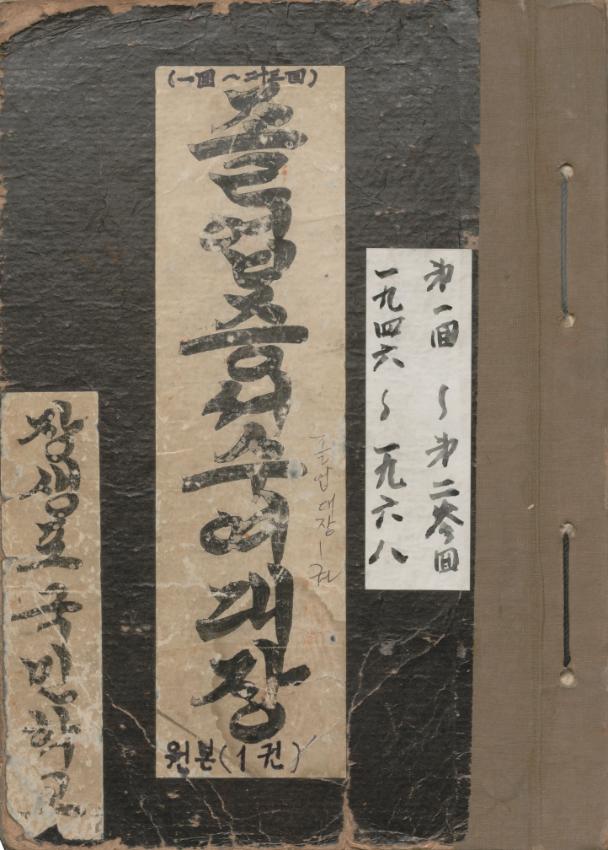 第一回 ~ 第二参回
一九四六 ~ 一九六八
(一回 ~ 二十三回)
졸업증서수여대장
졸업대장 1권
원본(1권)
장생포국민학교